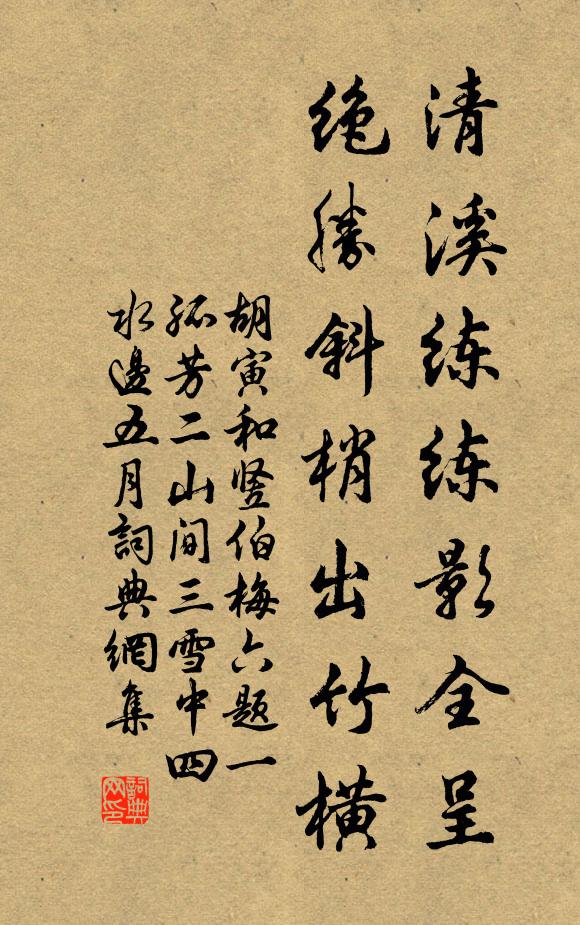 清溪练练影全呈
绝勝斜梢出竹橫
胡寅和竖伯梅六题一
孤芳二山间三雪中四
水邊五月詞典網集
詞典网印